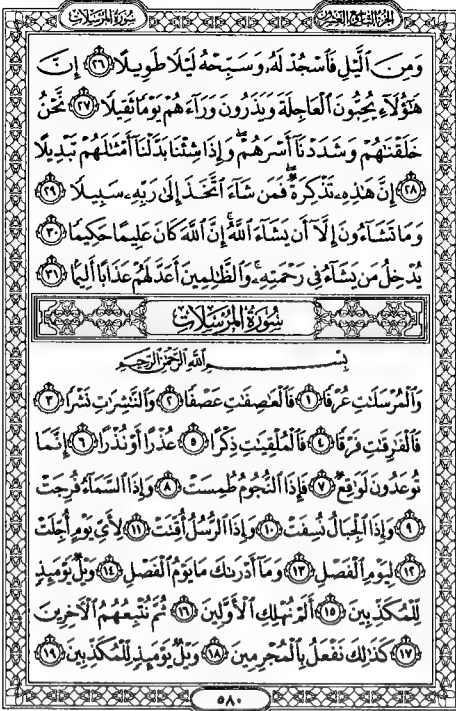 الجزء التاسع والعشرون سورة المرسلات
وَمِنَ ٱلَّيْلِ فَٱسْجُدْ لَهُۥ وَسَبِّحْهُ لَيْلًا طَوِيلًا ﴿٢٦﴾ إِنَّ
هَٰٓؤُلَآءِ يُحِبُّونَ ٱلْعَاجِلَةَ وَيَذَرُونَ وَرَآءَهُمْ يَوْمًا ثَقِيلًا ﴿٢٧﴾ نَّحْنُ
خَلَقْنَٰهُمْ وَشَدَدْنَآ أَسْرَهُمْ ۖ وَإِذَا شِئْنَا بَدَّلْنَآ أَمْثَٰلَهُمْ تَبْدِيلًا
﴿٢٨﴾ إِنَّ هَٰذِهِۦ تَذْكِرَةٌ ۖ فَمَن شَآءَ ٱتَّخَذَ إِلَىٰ رَبِّهِۦ سَبِيلًا ﴿٢٩﴾
وَمَا تَشَآءُونَ إِلَّآ أَن يَشَآءَ ٱللَّهُ ۚ إِنَّ ٱللَّهَ كَانَ عَلِيمًا حَكِيمًا ﴿٣٠﴾
يُدْخِلُ مَن يَشَآءُ فِى رَحْمَتِهِۦ ۚ وَٱلظَّٰلِمِينَ أَعَدَّ لَهُمْ عَذَابًا أَلِيمًا ﴿٣١﴾
سُورَةُ المُرْسَلَات
بِسْمِ ٱللَّهِ ٱلرَّحْمَٰنِ ٱلرَّحِيمِ
وَٱلْمُرْسَلَٰتِ عُرْفًا ﴿١﴾ فَٱلْعَٰصِفَٰتِ عَصْفًا ﴿٢﴾ وَٱلنَّٰشِرَٰتِ نَشْرًا ﴿٣﴾
فَٱلْفَٰرِقَٰتِ فَرْقًا ﴿٤﴾ فَٱلْمُلْقِيَٰتِ ذِكْرًا ﴿٥﴾ عُذْرًا أَوْ نُذْرًا ﴿٦﴾ إِنَّمَا
تُوعَدُونَ لَوَٰقِعٌ ﴿٧﴾ فَإِذَا ٱلنُّجُومُ طُمِسَتْ ﴿٨﴾ وَإِذَا ٱلسَّمَآءُ فُرِجَتْ
﴿٩﴾ وَإِذَا ٱلْجِبَالُ نُسِفَتْ ﴿١٠﴾ وَإِذَا ٱلرُّسُلُ أُقِّتَتْ ﴿١١﴾ لِأَىِّ يَوْمٍ أُجِّلَتْ
﴿١٢﴾ لِيَوْمِ ٱلْفَصْلِ ﴿١٣﴾ وَمَآ أَدْرَىٰكَ مَا يَوْمُ ٱلْفَصْلِ ﴿١٤﴾ وَيْلٌ يَوْمَئِذٍ
لِّلْمُكَذِّبِينَ ﴿١٥﴾ أَلَمْ نُهْلِكِ ٱلْأَوَّلِينَ ﴿١٦﴾ ثُمَّ نُتْبِعُهُمُ ٱلْءَاخِرِينَ
﴿١٧﴾ كَذَٰلِكَ نَفْعَلُ بِٱلْمُجْرِمِينَ ﴿١٨﴾ وَيْلٌ يَوْمَئِذٍ لِّلْمُكَذِّبِينَ ﴿١٩﴾
٥٨٠